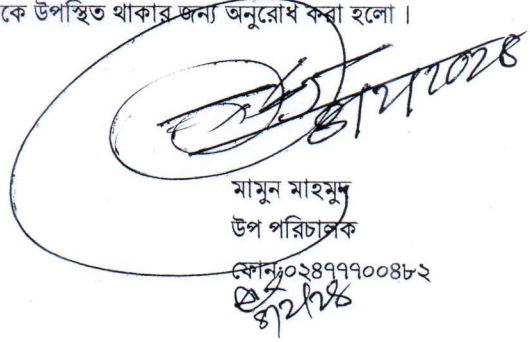 কে উপস্থিত থাকার জন্য অনুরোধ করা হলো।
মামুন মাহমুদ
উপ পরিচালক
ফোন:০২৪৭৭৭০০৪৮২